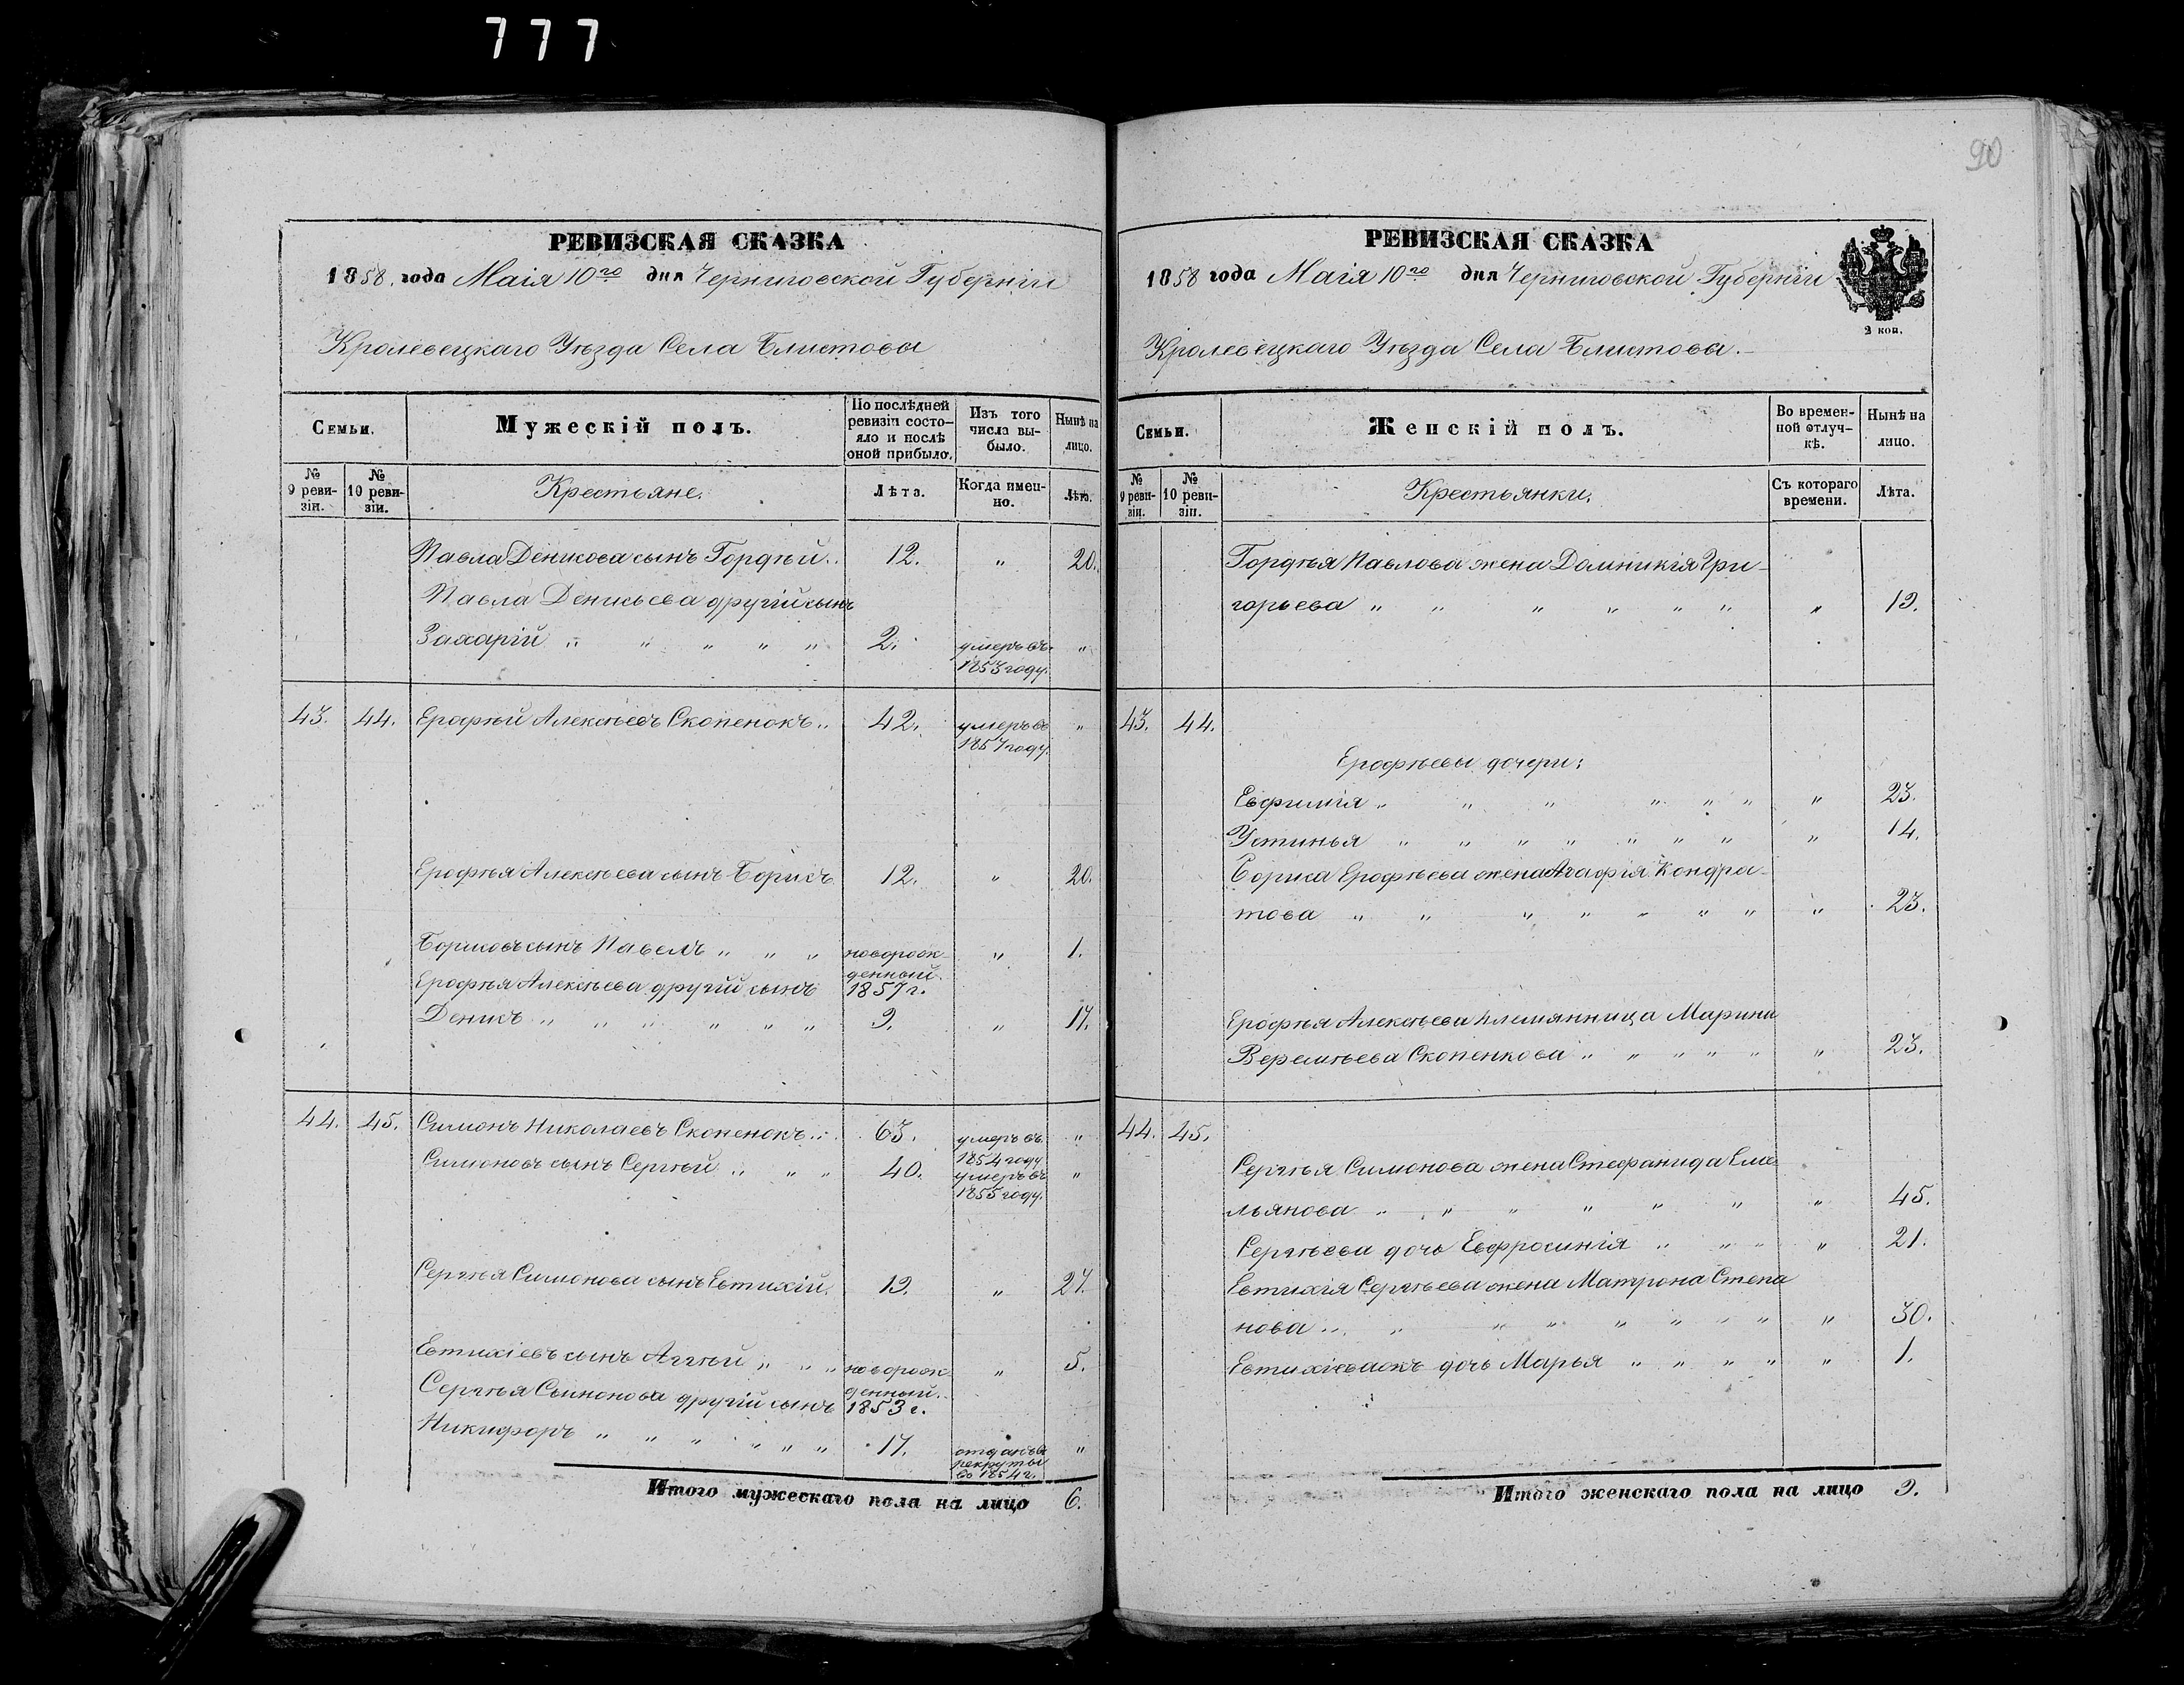 777
90
РЕВИЗСКАЯ СКАЗКА
1858 года Маія 10го дня Черниговской Губерніи
Кролевецкаго Уѣзда Села Блистовы
Семьи.
Мужескій полъ.
По послѣдней ревизіи состо-
яло и послѣ оной прибыло.
Изъ того числа вы-
было.
Нынѣ на лицо.
№ 9 реви-
зіи.
№ 10 реви-
зіи.
Крестьяне.
Лѣта.
Когда имен-
но.
Лѣта.
Павла Денисова сынъ Гордѣй.. 12. " 20.
Павла Денисьева другій сынъ
Захарій " " " " " 2. умеръ въ "
1853 году.
43. 44. Ерофѣй Алексѣевъ Скопенокъ.. 42. умеръ въ "
1857 году.
Ерофѣя Алексѣева сынъ Борисъ 12. " 20.
Борисовъ сынъ Павелъ " " " новорож- " 1.
денный
Ерофѣя Алексѣева другій сынъ 1857 г.
Денисъ " " " " " " 9. " 17.
44. 45. Симонъ Николаевъ Скопенокъ... 63. умеръ въ "
1854 году
Симоновъ сынъ Сергѣй " " " 40. умеръ въ "
1855 году.
Сергѣя Симонова сынъ Евтихій. 19. " 27.
Евтихіевъ сынъ Аггѣй " " " новорож- " 5.
денный.
Сергѣя Симонова другій сынъ 1853 г.
Никифоръ " " " " " " 17. отданъ въ "
рекруты
въ 1854 г.
Итого мужескаго пола на лицо 6.
РЕВИЗСКАЯ СКАЗКА
1858 года Маія 10го дня Черниговской Губерніи
2 коп.
Кролевецкаго Уѣзда Села Блистовы.
Семьи.
Женскій полъ.
Во времен-
ной отлуч-
кѣ.
Нынѣ на лицо.
№ 9 реви-
зіи.
№ 10 реви-
зіи.
Крестьянки.
Съ котораго времени.
Лѣта.
Гордѣя Павлова жена Домникія Гри-
горьева " " " " " " " 19.
43. 44.
Ерофѣевы дочери:
Евфимія " " " " " " " 23.
Устинья " " " " " " " " 14.
Бориса Ерофѣева жена Агафія Кондра-
това " " " " " " " " 23.
Ерофѣя Алексѣева племянница Марина
Веремѣева Скопенкова " " " " " " 23.
44. 45.
Сергѣя Симонова жена Стефанида Еме-
льянова " " " " " " " 45.
Сергѣева дочь Евфросинія " " " " 21.
Евтихія Сергѣева жена Матрона Степа
нова " " " " " " " " " 30.
Евтихіеваяжъ дочь Марья " " " " " 1.
Итого женскаго пола на лицо 9.